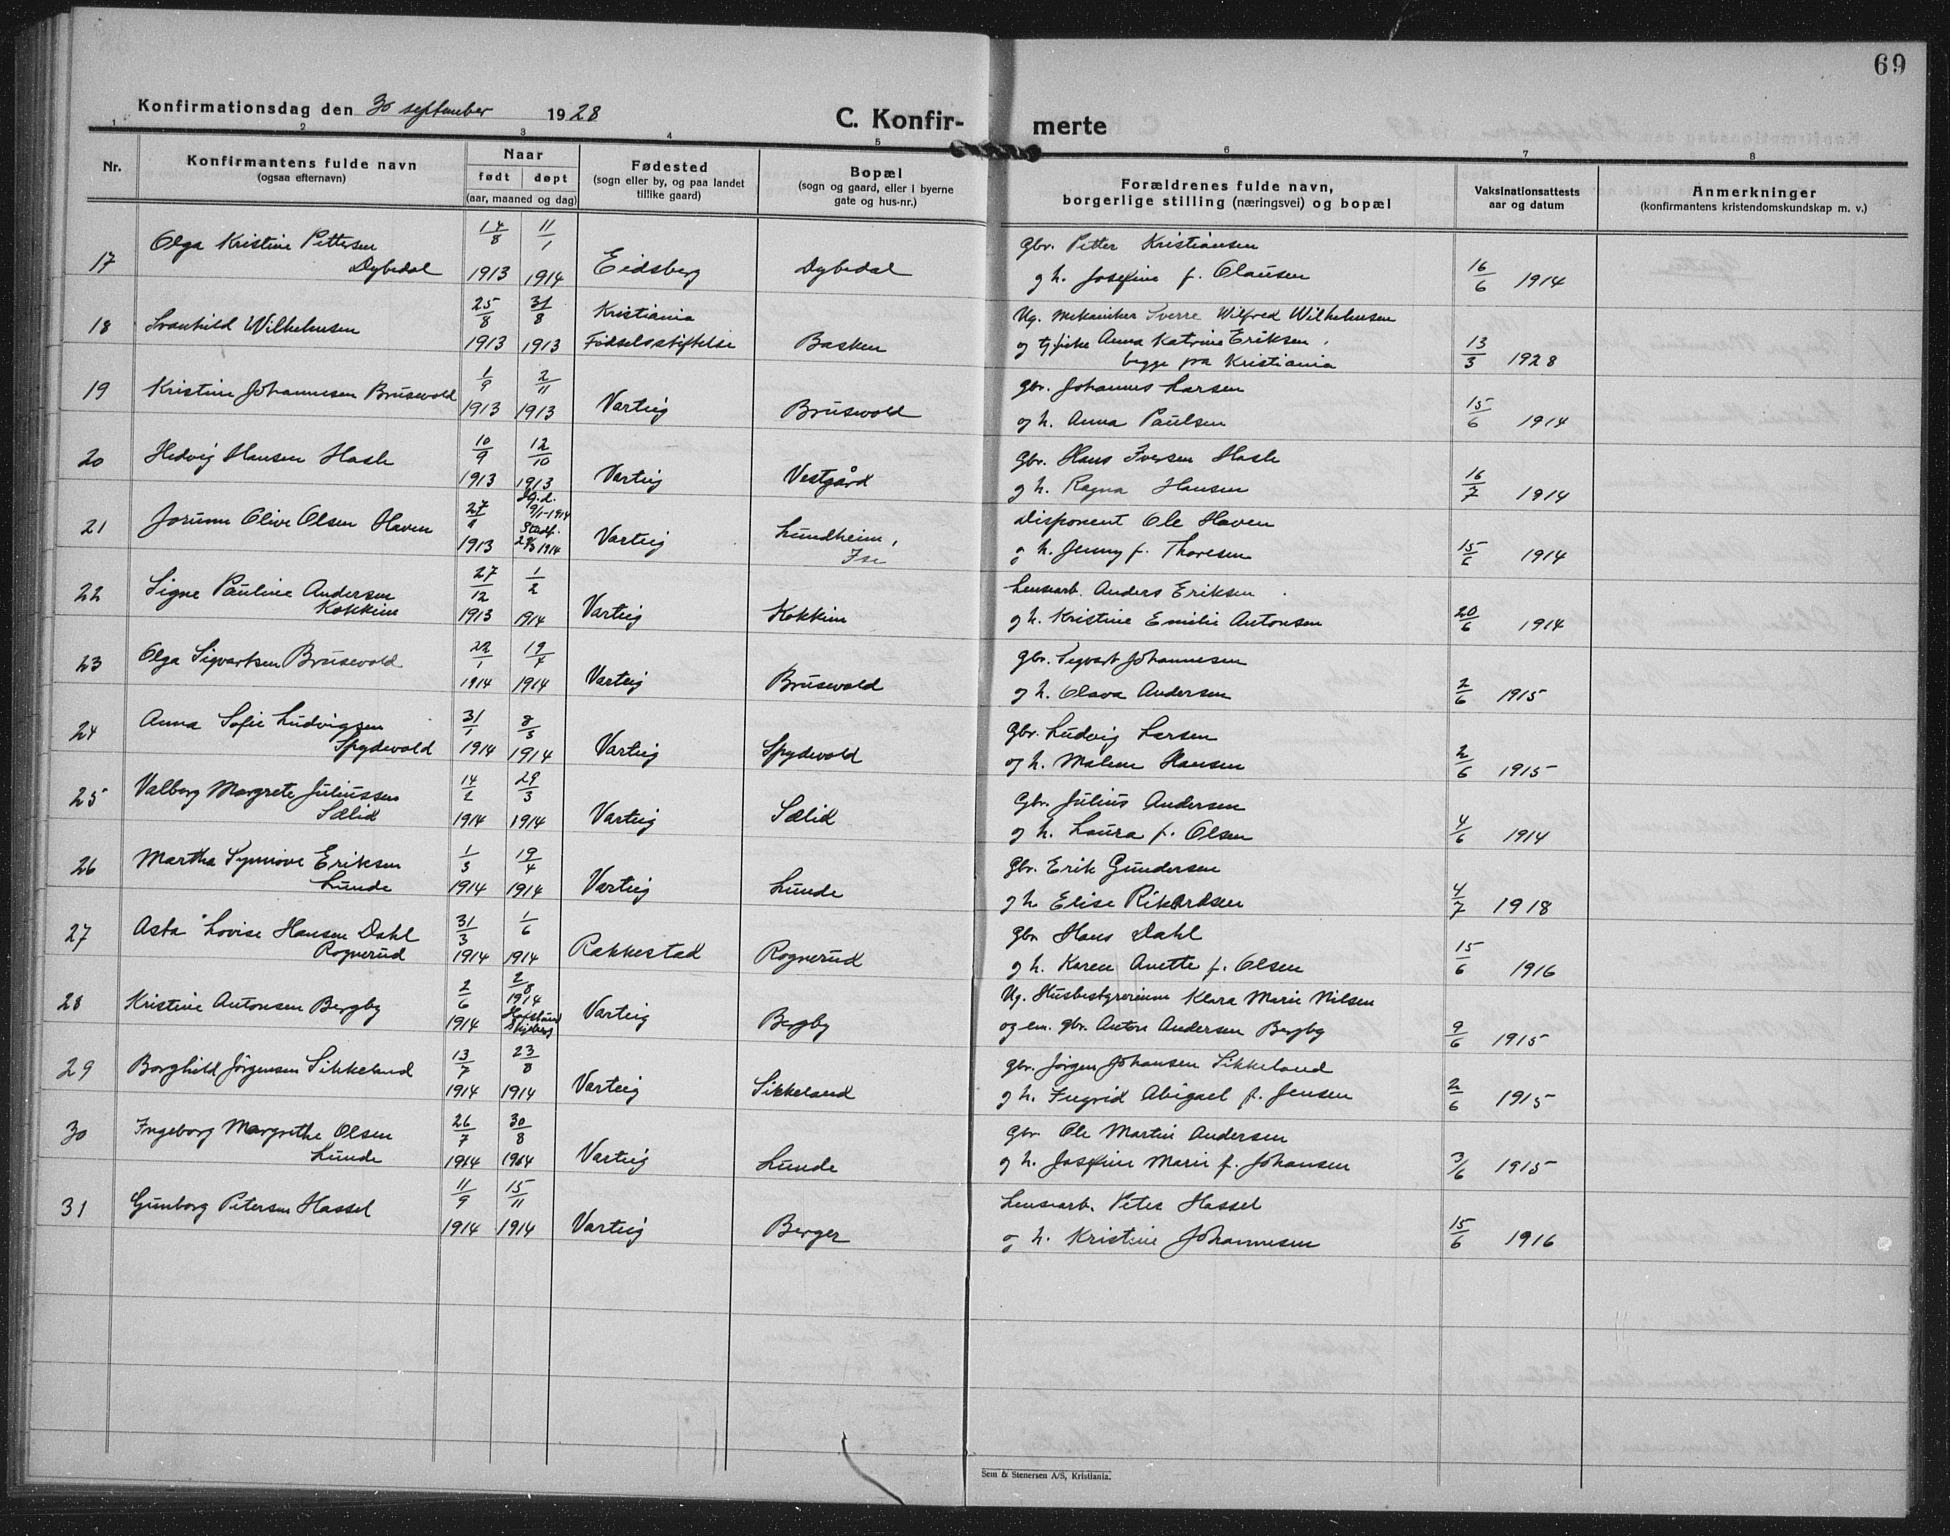 69
Konfirmationsdag den 30 september 1928
C. Konfir- merte
1 2 3 4 5 6 7 8
Nr.
Konfirmantens fulde navn
(ogsaa efternavn)
Naar
født døpt
(aar, maaned og dag)
Fødested
(sogn eller by, og paa landet
tillike gaard)
Bopæl
(sogn og gaard, eller i byerne
gate og hus-nr.)
Forældrenes fulde navn,
borgerlige stilling (næringsvei) og bopæl
Vaksinationsattests
aar og datum
Anmerkninger
(konfirmantens kristendomskundskap m. v.)
Olga Kristine Pettersen 14/8 11/1 Gbr. Petter Kristiansen
17 Dybedal 1913 1914 Eidsberg Dybedal og h. Josefine f. Olausen 16/6 1914
25/8 31/8 Kristiania Ug. Mekaniker Sverre Wilfred Wilhelmsen
18 Svanhild Wilhelmsen 1913 1913 Fødselsstiftelse Basken og tj.pike Anna Katrine Eriksen, 13/3 1928
begge fra Kristiania
19 Kristine Johannesen Brusevold 1/9 2/11 Gbr. Johannes Larsen
1913 1913 Varteig Brusevold og h. Anna Paulsen 15/6 1914
20 Hedvig Hansen Hasle 10/9 12/10 Gbr. Hans Iversen Hasle
1913 1913 Varteig Vestgård og h. Ragna Hansen 16/7 1914
21 Jorunn Olive Olsen Haven 27/ Hj.d. 9/1-1914 Disponent Ole Haven
1913 Stadf. 1914 Varteig Lundheim, Ise og h. Jenny f. Thoresen 15/6 1914
22 Signe Pauline Andersen 27/12 1/2 Lensearb. Anders Eriksen
Kokkim 1913 1914 Varteig Kokkim og h. Kristine Emilie Antonsen 20/6 1914
23 Olga Sigvartsen Brusevold 22/1 19/4 Gbr. Sigvart Johannesen
1914 1914 Varteig Brusevold og h. Olava Andersen 2/6 1915
24 Anna Sofie Ludvigsen 31/1 8/3 Gbr. Ludvig Larsen
Spydevold 1914 1914 Varteig Spydevold og h. Malene Hansen 2/6 1915
25 Valborg Margrete Juliussen 14/2 29/3 Gbr. Julius Andersen
Sælid 1914 1914 Varteig Sælid og h. Laura f. Olsen 4/6 1914
26 Martha Synnøve Eriksen 1/3 19/4 Gbr. Erik Gundersen
Lunde 1914 1914 Varteig Lunde og h Elise Rikardsen 4/7 1918
27 Asta Lovise Hansen Dahl 31/3 1/6 Gbr Hans Dahl
Rognerud 1914 1914 Rakkestad Rognerud og h. Karen Anette f. Olsen 15/6 1916
28 Kristine Antonsen Bergby 2/6 2/8 1914 Ug. Husbestyrerinne Klara Marie Nilsen
1914 Hafslund Skjeberg Varteig Bergby og em. gbr. Anton Andersen Bergby 9/6 1915
29 Borghild Jørgensen Sikkeland 13/7 23/8 Gbr. Jørgen Johansen Sikkeland
1914 1914 Varteig Sikkeland og h. Ingrid Abigael f. Jensen 2/6 1915
30 Ingeborg Margrethe Olsen 26/7 30/8 Gbr Ole Martin Andersen
Lunde 1914 1914 Varteig Lunde og h. Josefine Marie f. Johansen 3/6 1915
31 Gunborg Petersen Hassel 11/9 15/11 Lensearb. Peter Hassel
1914 1914 Varteig Berger og h. Kristine Johannesen 15/6 1916
Sem & Stenersen A/S, Kristiania.